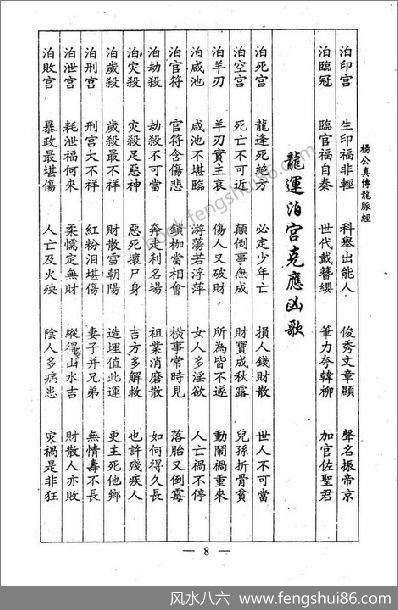 楊公真傳龍脈經
泊印宮 生印福非輕 科舉出能人 俊秀文章顯 聲名振帝京
泊臨冠 臨官福自泰 世代戴簪纓 筆力參韓柳 加官佐聖君
龍運泊宮克應凶歌
泊死宮 龍逢死絕方 必定少年亡 損人錢財散 世人不可當
泊空宮 死亡不可近 顛倒事無成 財寶成秋露 兒孫折骨貧
泊羊刃 羊刃實主哀 傷人又破財 所為皆不遂 動關禍重來
泊咸池 咸池不堪臨 游蕩若浮萍 女人多淫欲 人亡禍不停
泊官符 官符含傷悲 鎖枷當相會 橫事常時見 落胎又倒霉
泊劫殺 劫殺不可當 奔走利名場 祖業消磨散 如何得久長
泊災殺 災殺足惡神 惡死壞尸身 吉方多解救 也許殘疾人
泊歲殺 歲殺最不祥 財散雪朝陽 造埋值此運 更主死他鄉
泊刑宮 刑宮大不祥 紅粉泪堪傷 妻子并兄弟 無情壽不長
泊泄宮 耗泄福何來 柔懦定無財 縱得山水吉 財散人亦敗
泊敗宮 暴敗最堪傷 人亡及火殃 陰人多病患 災禍是非狂
— 8 —
www.fengshui86.com
风水八六：www.fengshui86.com